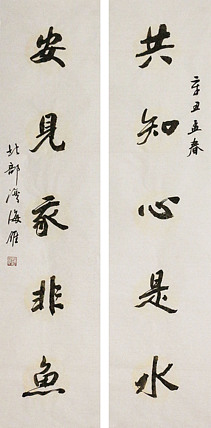 辛丑孟春
共知心是水
安見我非魚
北部湾海雁